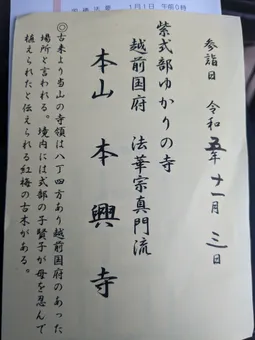 1月1日 午前0時
参詣日 令和五年十一月三日
紫式部ゆかりの寺
越前国府 法華宗真門流
本山 本興寺
◎古来より当山の寺領は八丁四方あり越前国府のあった
場所と言われる。境内には式部の子賢子が母を忍んで
植えられたと伝えられる紅梅の古木がある。